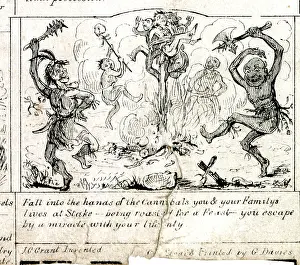 Fall into the hands of the Cannibals you & your Familys
lives at Stake — being roast for a Feast you escape
by a miracle with your life only
JC Grant Invented
Printed by G Davies